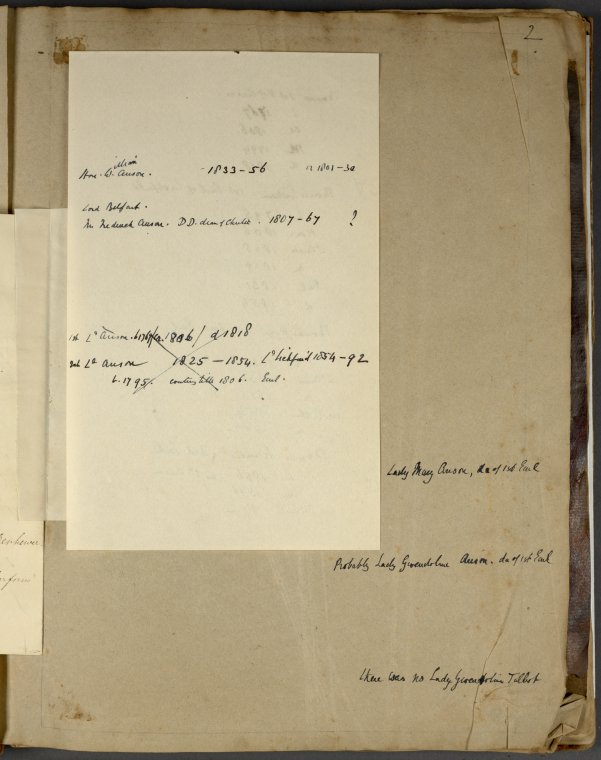 2
Hon. William Anson. 1833-56 or 1801-30
Lord Belfast.
Mr Frederick Anson. D.D. dean of Chester. 1807-67 ?
1st Ld Anson. 1806/ d 1818
2nd Ld Anson 1825-1854. Ld Lichfield 1854-92
b. 1795/ title 1806. Earl.
Lady Mary Anson, da of 1st Earl
Probably Lady Gwendoline Anson. da of 1st Earl
there was no Lady Gwendoline Talbot